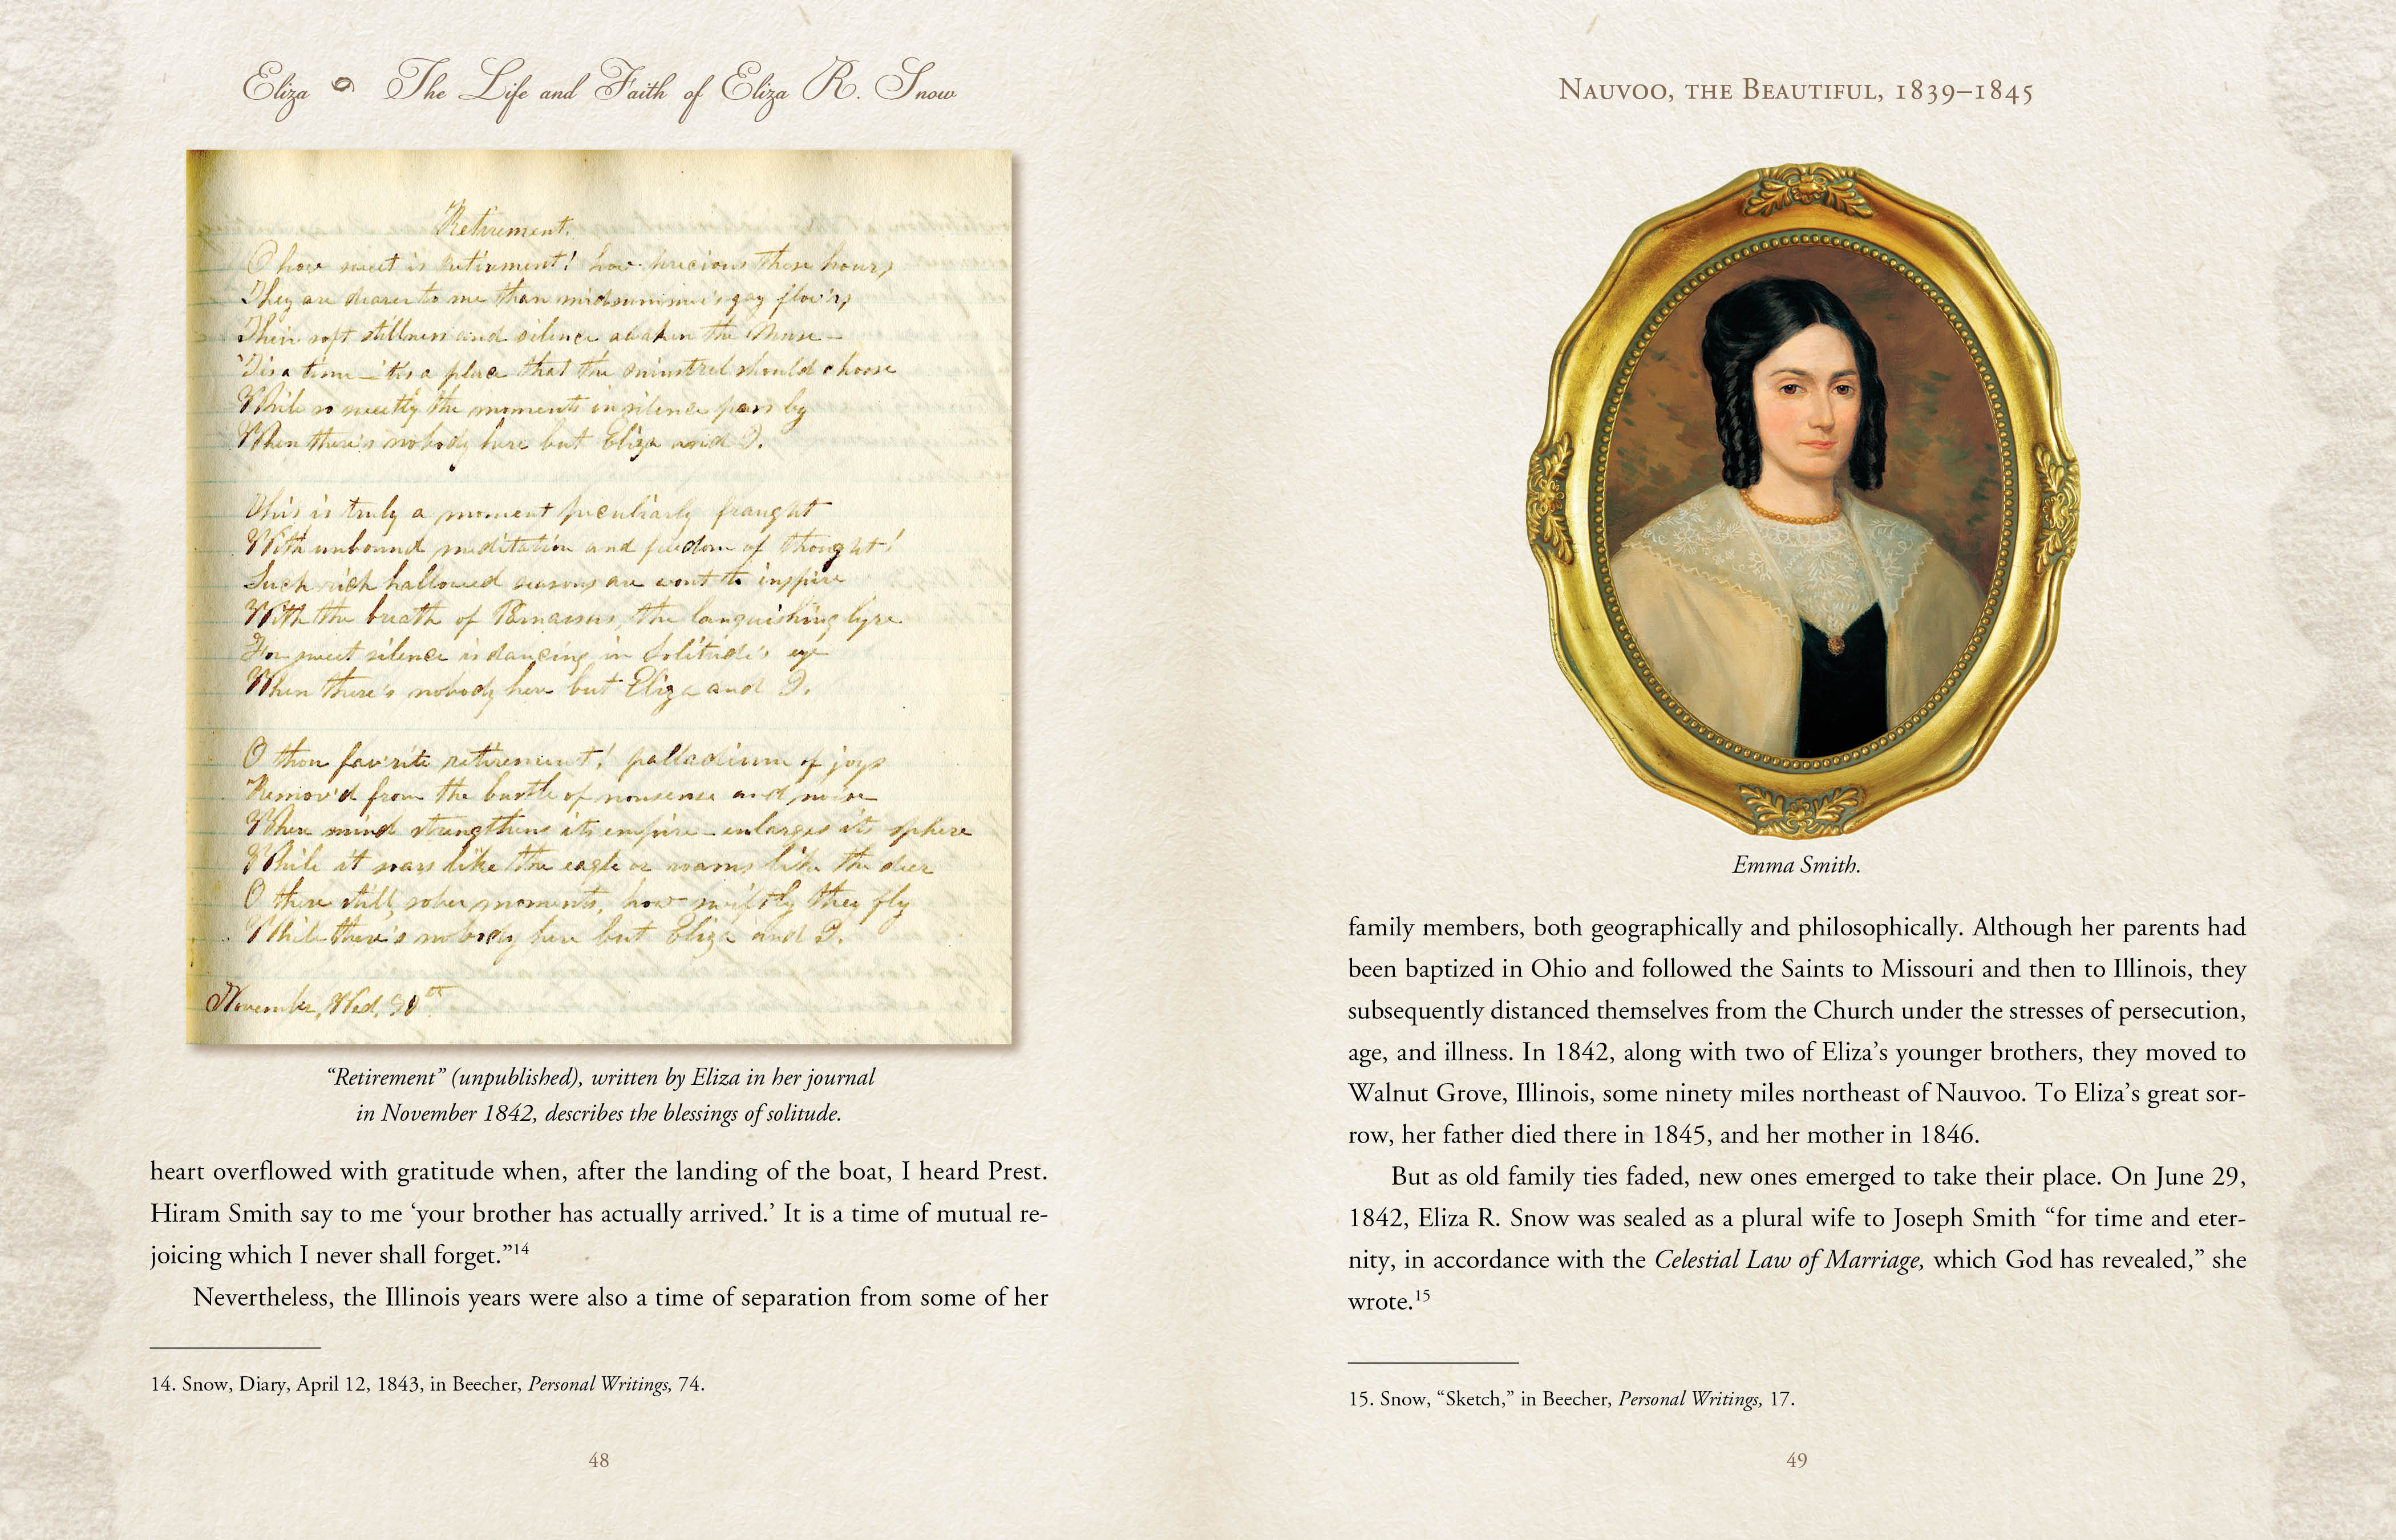 Eliza The Life and Faith of Eliza R. Snow
Retirement.
O how sweet is retirement! how precious these hours,
They are dearer to me than midsummer's gay flow'rs,
Their soft stillness and silence awaken the Muse—
'Tis a time—'tis a place that the minstrel should choose
While so sweetly the moments in silence pass by
When there's nobody here but Eliza and I.
This is truly a moment peculiarly fraught
With unbound meditation and freedom of thought!
Such rich hallowed seasons are wont to inspire
With the breath of Parnassus, the languishing lyre
For sweet silence is dancing in Solitude's eye
When there's nobody here but Eliza and I.
O thou fav'rite retirement! palladium of joys
Remov'd from the bustle of nonsense and noise
Where mind strengthens its empire—enlarges its sphere
While it soars like the eagle or roams like the deer
O these still, sober moments, how swiftly they fly
While there's nobody here but Eliza and I.
November, Wed, 30th.
“Retirement” (unpublished), written by Eliza in her journal
in November 1842, describes the blessings of solitude.
heart overflowed with gratitude when, after the landing of the boat, I heard Prest.
Hiram Smith say to me ‘your brother has actually arrived.’ It is a time of mutual re-
joicing which I never shall forget.”14
Nevertheless, the Illinois years were also a time of separation from some of her
14. Snow, Diary, April 12, 1843, in Beecher, Personal Writings, 74.
48
Nauvoo, the Beautiful, 1839–1845
Emma Smith.
family members, both geographically and philosophically. Although her parents had
been baptized in Ohio and followed the Saints to Missouri and then to Illinois, they
subsequently distanced themselves from the Church under the stresses of persecution,
age, and illness. In 1842, along with two of Eliza’s younger brothers, they moved to
Walnut Grove, Illinois, some ninety miles northeast of Nauvoo. To Eliza’s great sor-
row, her father died there in 1845, and her mother in 1846.
But as old family ties faded, new ones emerged to take their place. On June 29,
1842, Eliza R. Snow was sealed as a plural wife to Joseph Smith “for time and eter-
nity, in accordance with the Celestial Law of Marriage, which God has revealed,” she
wrote.15
15. Snow, “Sketch,” in Beecher, Personal Writings, 17.
49